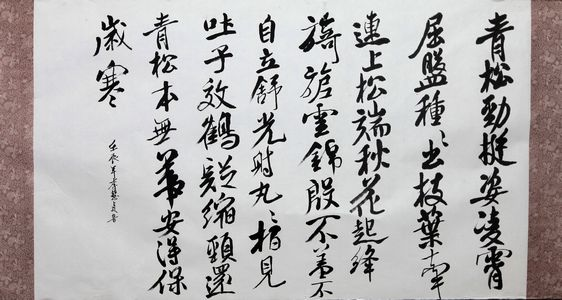 青松勁挺姿凌霄
屈盤種〻出枝葉牽
連上松端秋花起絳
旖旎雲錦殷不羞不
自立舒光射丸〻栢見
吐子效鶴疑縮頸還
青松本無華安得保
歲寒
壬辰年